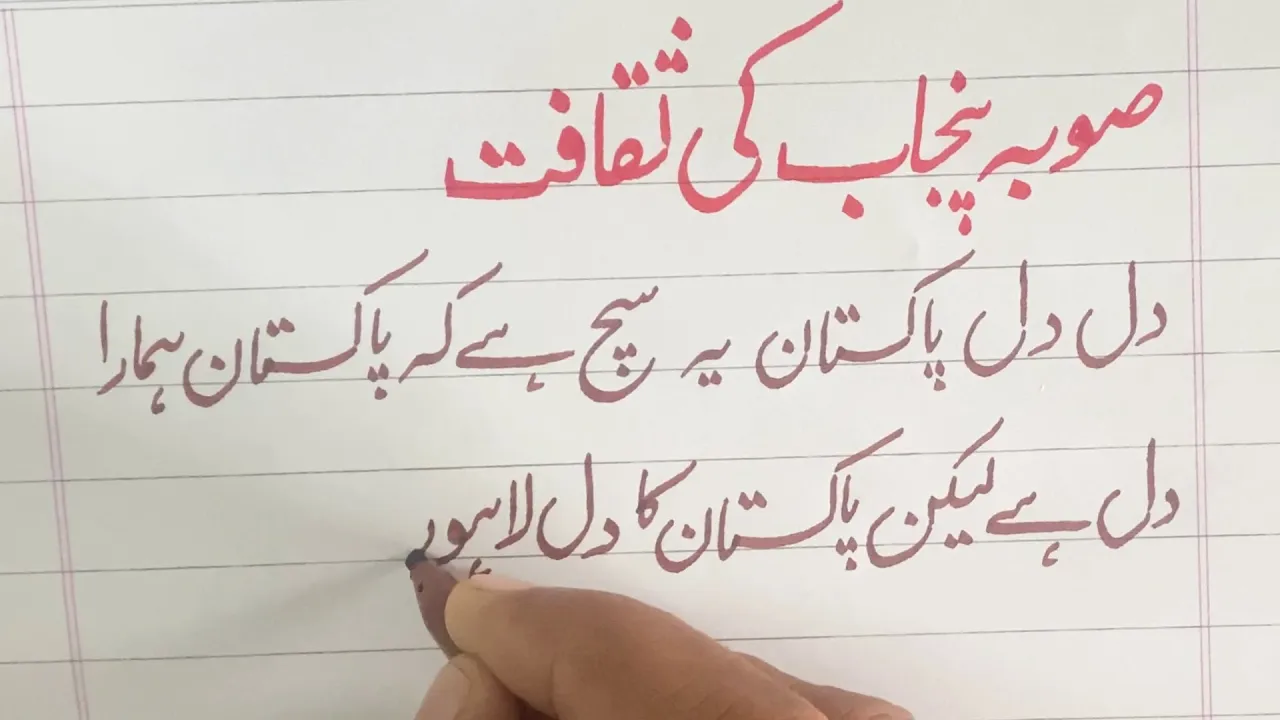 صوبہ پنجاب کی ثقافت
دل دل پاکستان یہ سچ ہے کہ پاکستان ہمارا
دل ہے لیکن پاکستان کا دل لاہور